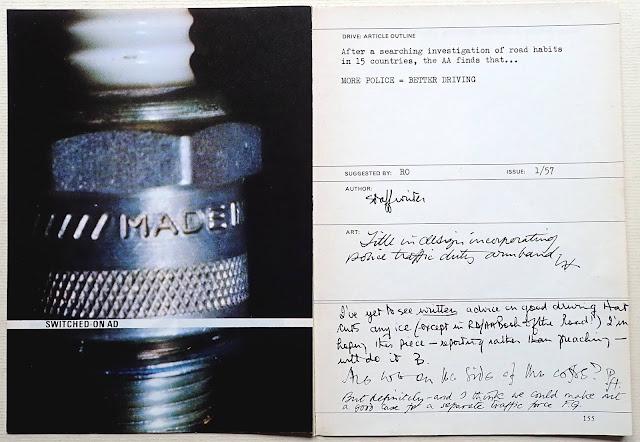 MADE
SWITCHED-ON AD
DRIVE: ARTICLE OUTLINE
After a searching investigation of road habits
in 15 countries, the AA finds that...
MORE POLICE = BETTER DRIVING
SUGGESTED BY: RO ISSUE: 1/57
AUTHOR:
Staff writer
ART:
Title in design incorporating
police traffic duty armband
I've yet to see written advice on good driving that
cuts any ice (except in RD/AA Book of the Road!) I'm
hoping this piece — reporting rather than preaching —
will do it
Are we on the side of the cops?
But definitely - and I think we could make out
a good case for a separate traffic force F.G.
155